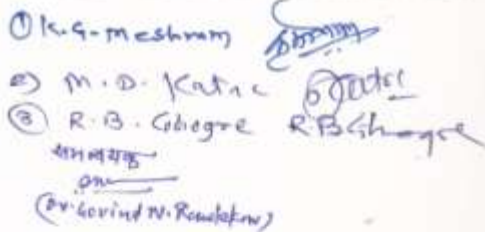 ① K.G. Meshram
2) M.D. Katre
③ R.B. Ghogre R.B Ghogre
समन्वयक
(Dr. Govind N.